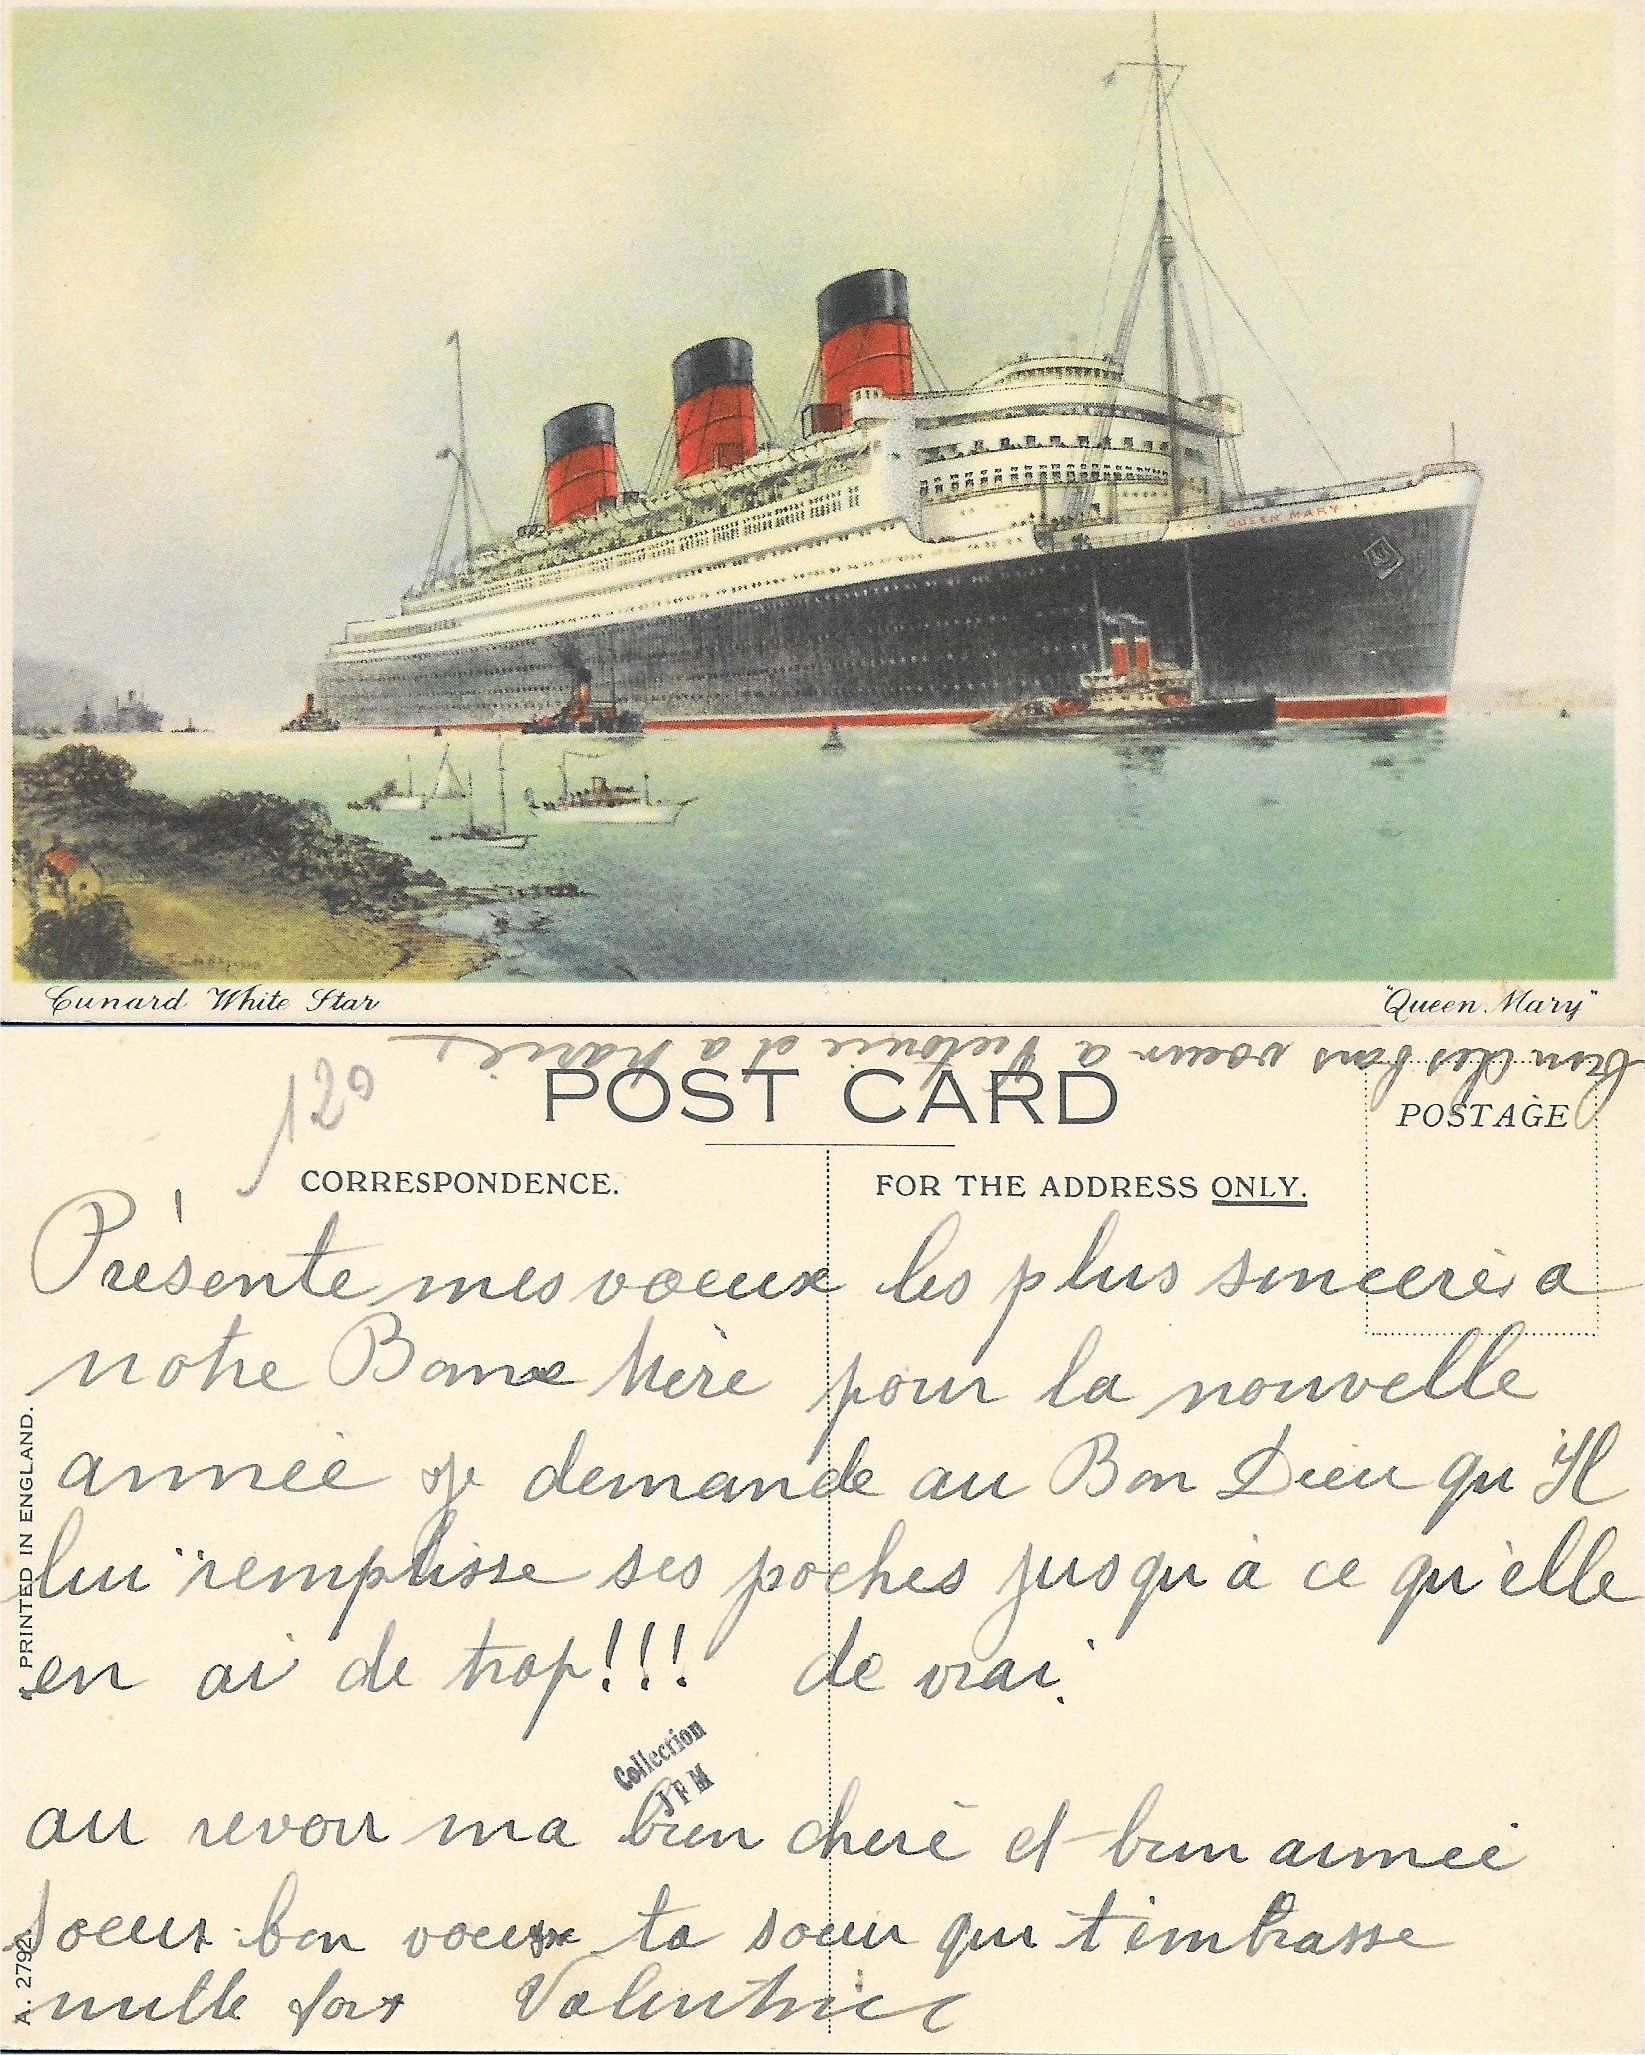 QUEEN MARY
Cunard White Star
"Queen Mary"
bien des bons voeux a Victoire et a Marie
120
POST CARD
POSTAGE
CORRESPONDENCE.
FOR THE ADDRESS ONLY.
Présente mes voeux les plus sinceres a
notre Bonne Mère pour la nouvelle
année je demande au Bon Dieu qu'Il
lui remplisse ses poches jusqu'à ce qu'elle
en ai de trop!!! de vrai.
Collection
JFM
au revoir ma bien cheré et bien aimeé
soeur bon voeux ta soeur qui t'embrasse
mille fois Valentine
PRINTED IN ENGLAND.
A. 2792.